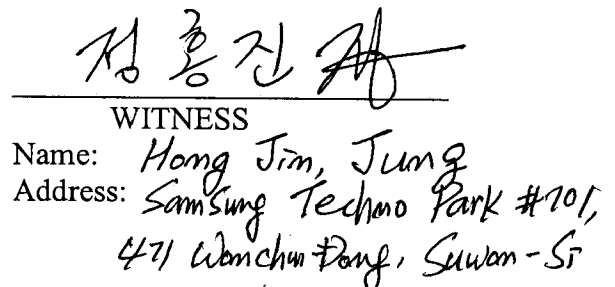 정홍진
WITNESS
Name: Hong Jin, Jung
Address: Samsung Techno Park #701,
471 Wonchun-Dong, Suwon-Si